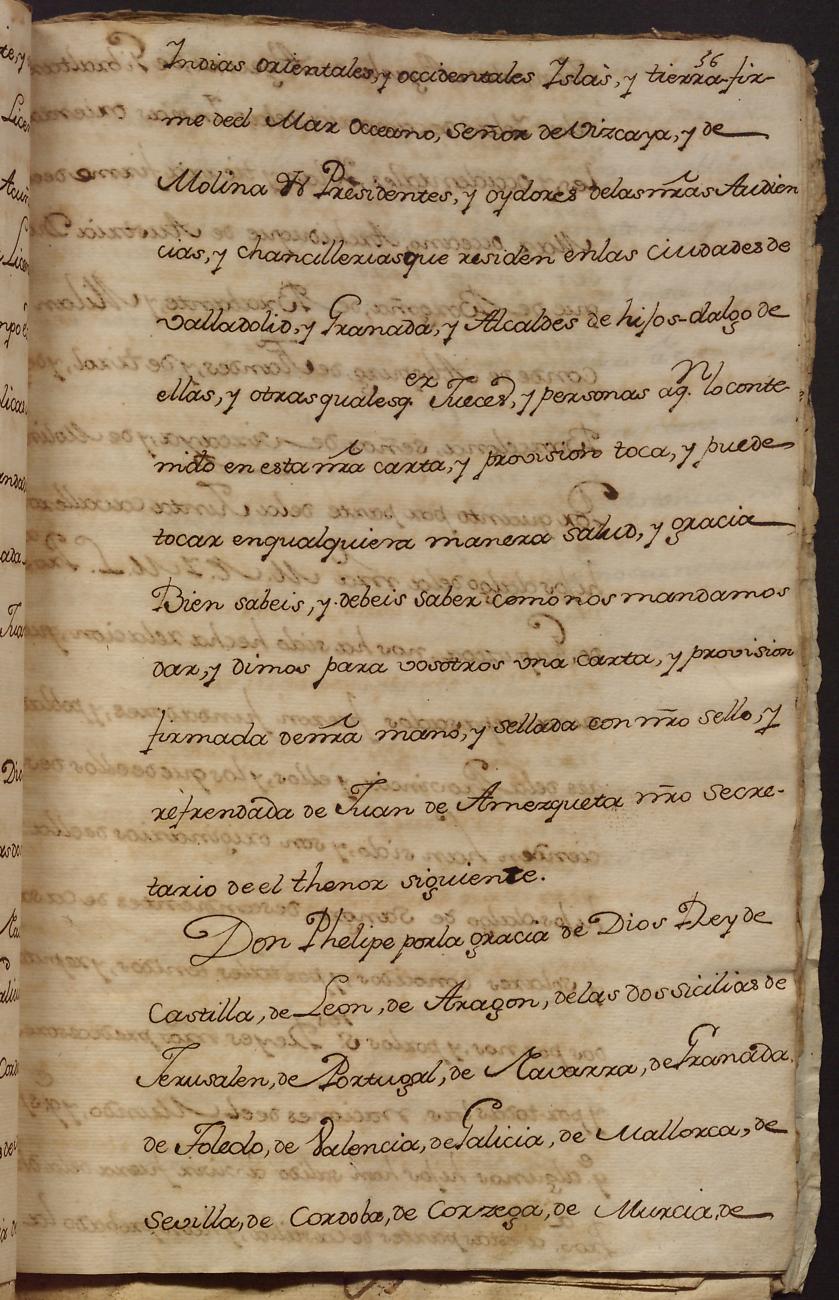 56
Indias orientales, y occidentales Islas, y tierra-fir-
me deel Mar Occeano, Señor de Vizcaya, y de
Molina & Presidentes, y oydores delas nrãs Audien
cias, y chancilleriasque residen enlas ciudades de
Valladolid, y Granada, y Alcaldes de hijos-dalgo de
ellas, y otras qualesq.er Jueces, y personas aq.n lo conte-
nido en esta nrã carta, y provision toca, y puede
tocar enqualquiera manera salud, y gracia
Bien sabeis, y debeis saber como nos mandamos
dar, y dimos para vosotros vna carta, y provision
firmada denrã mano, y sellada con nrõ sello, y
refrendada de Juan de Amezqueta nrõ Secre-
tario de el thenor siguiente.
Don Phelipe porla gracia de Dios Rey de
Castilla, de Leon, de Aragon, delas dos sicilias de
Jerusalen, de Portugal, de Navarra, de Granada,
de Toledo, de Valencia, de Galicia, de Mallorca, de
Sevilla, de Cordoba, de Corzega, de Murcia, de